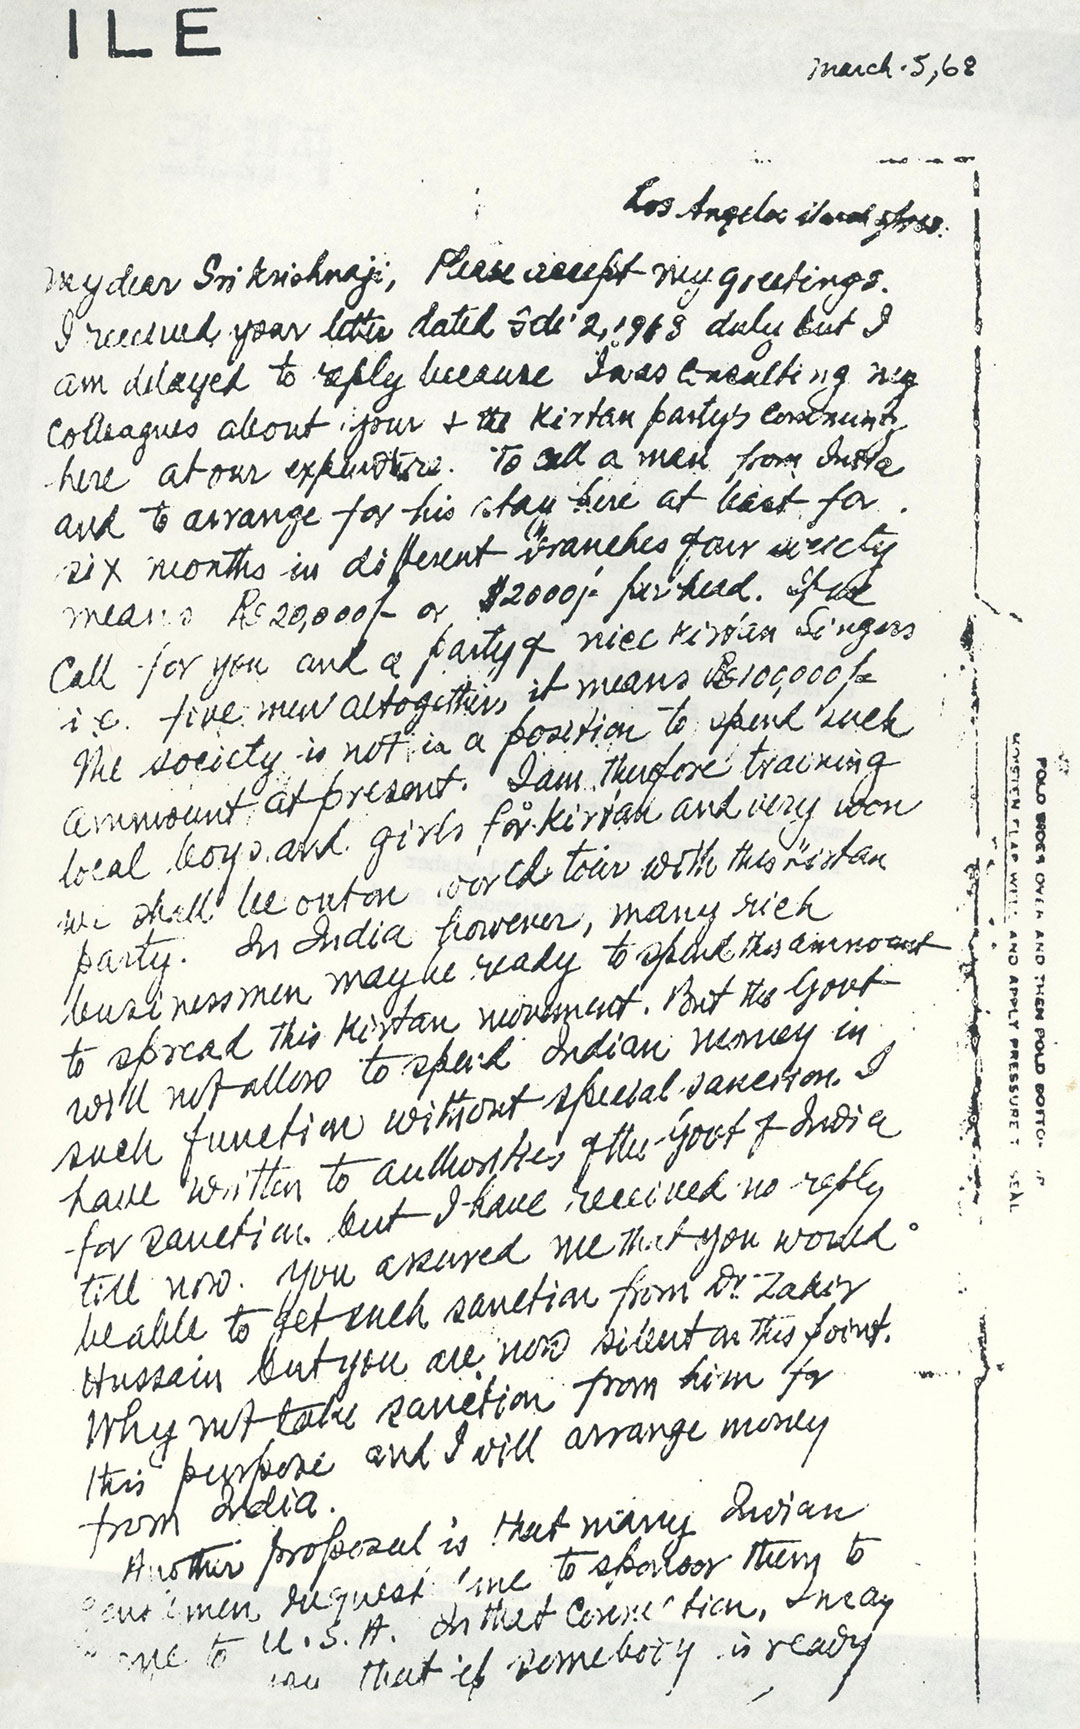 ILE
March 5, 68
Los Angeles March 5/68.
My dear Sri Krishnaji, Please accept my greetings.
I received your letter dated 2, 1968 duly but I
am delayed to reply because I was consulting my
Colleagues about your & the Kirtan party's coming
here at our expenditure. To call a man from India
and to arrange for his stay here at least for
six months in different branches of our society
means Rs 20,000/- or $2000/- per head. If we
Call for you and a party of nice Kirtan Singers
i.e. five men altogether, it means Rs 100,000/-
The society is not in a position to spend such
ammount at present. I am therefore training
local boys and girls for Kirtan and very soon
we shall be out on world tour with this Kirtan
party. In India however, many rich
businessmen may be ready to spend this ammount
to spread this Kirtan movement. But the Govt
will not allow to spend Indian money in
such function without special sanction. I
have written to authorities of the Govt of India
for sanction but I have received no reply
till now. You assured me that you would
be able to get such sanction from Dr. Zakir
Hussain but you are now silent on this point.
Why not take sanction from him for
this purpose and I will arrange money
from India.
Another proposal is that many Indian
gentlemen request me to sponsor them to
come to U.S.A. In that connection, I may
that if somebody is ready
FOLD SIDES OVER AND THEN FOLD BOTTOM UP
MOISTEN FLAP WELL AND APPLY PRESSURE TO SEAL